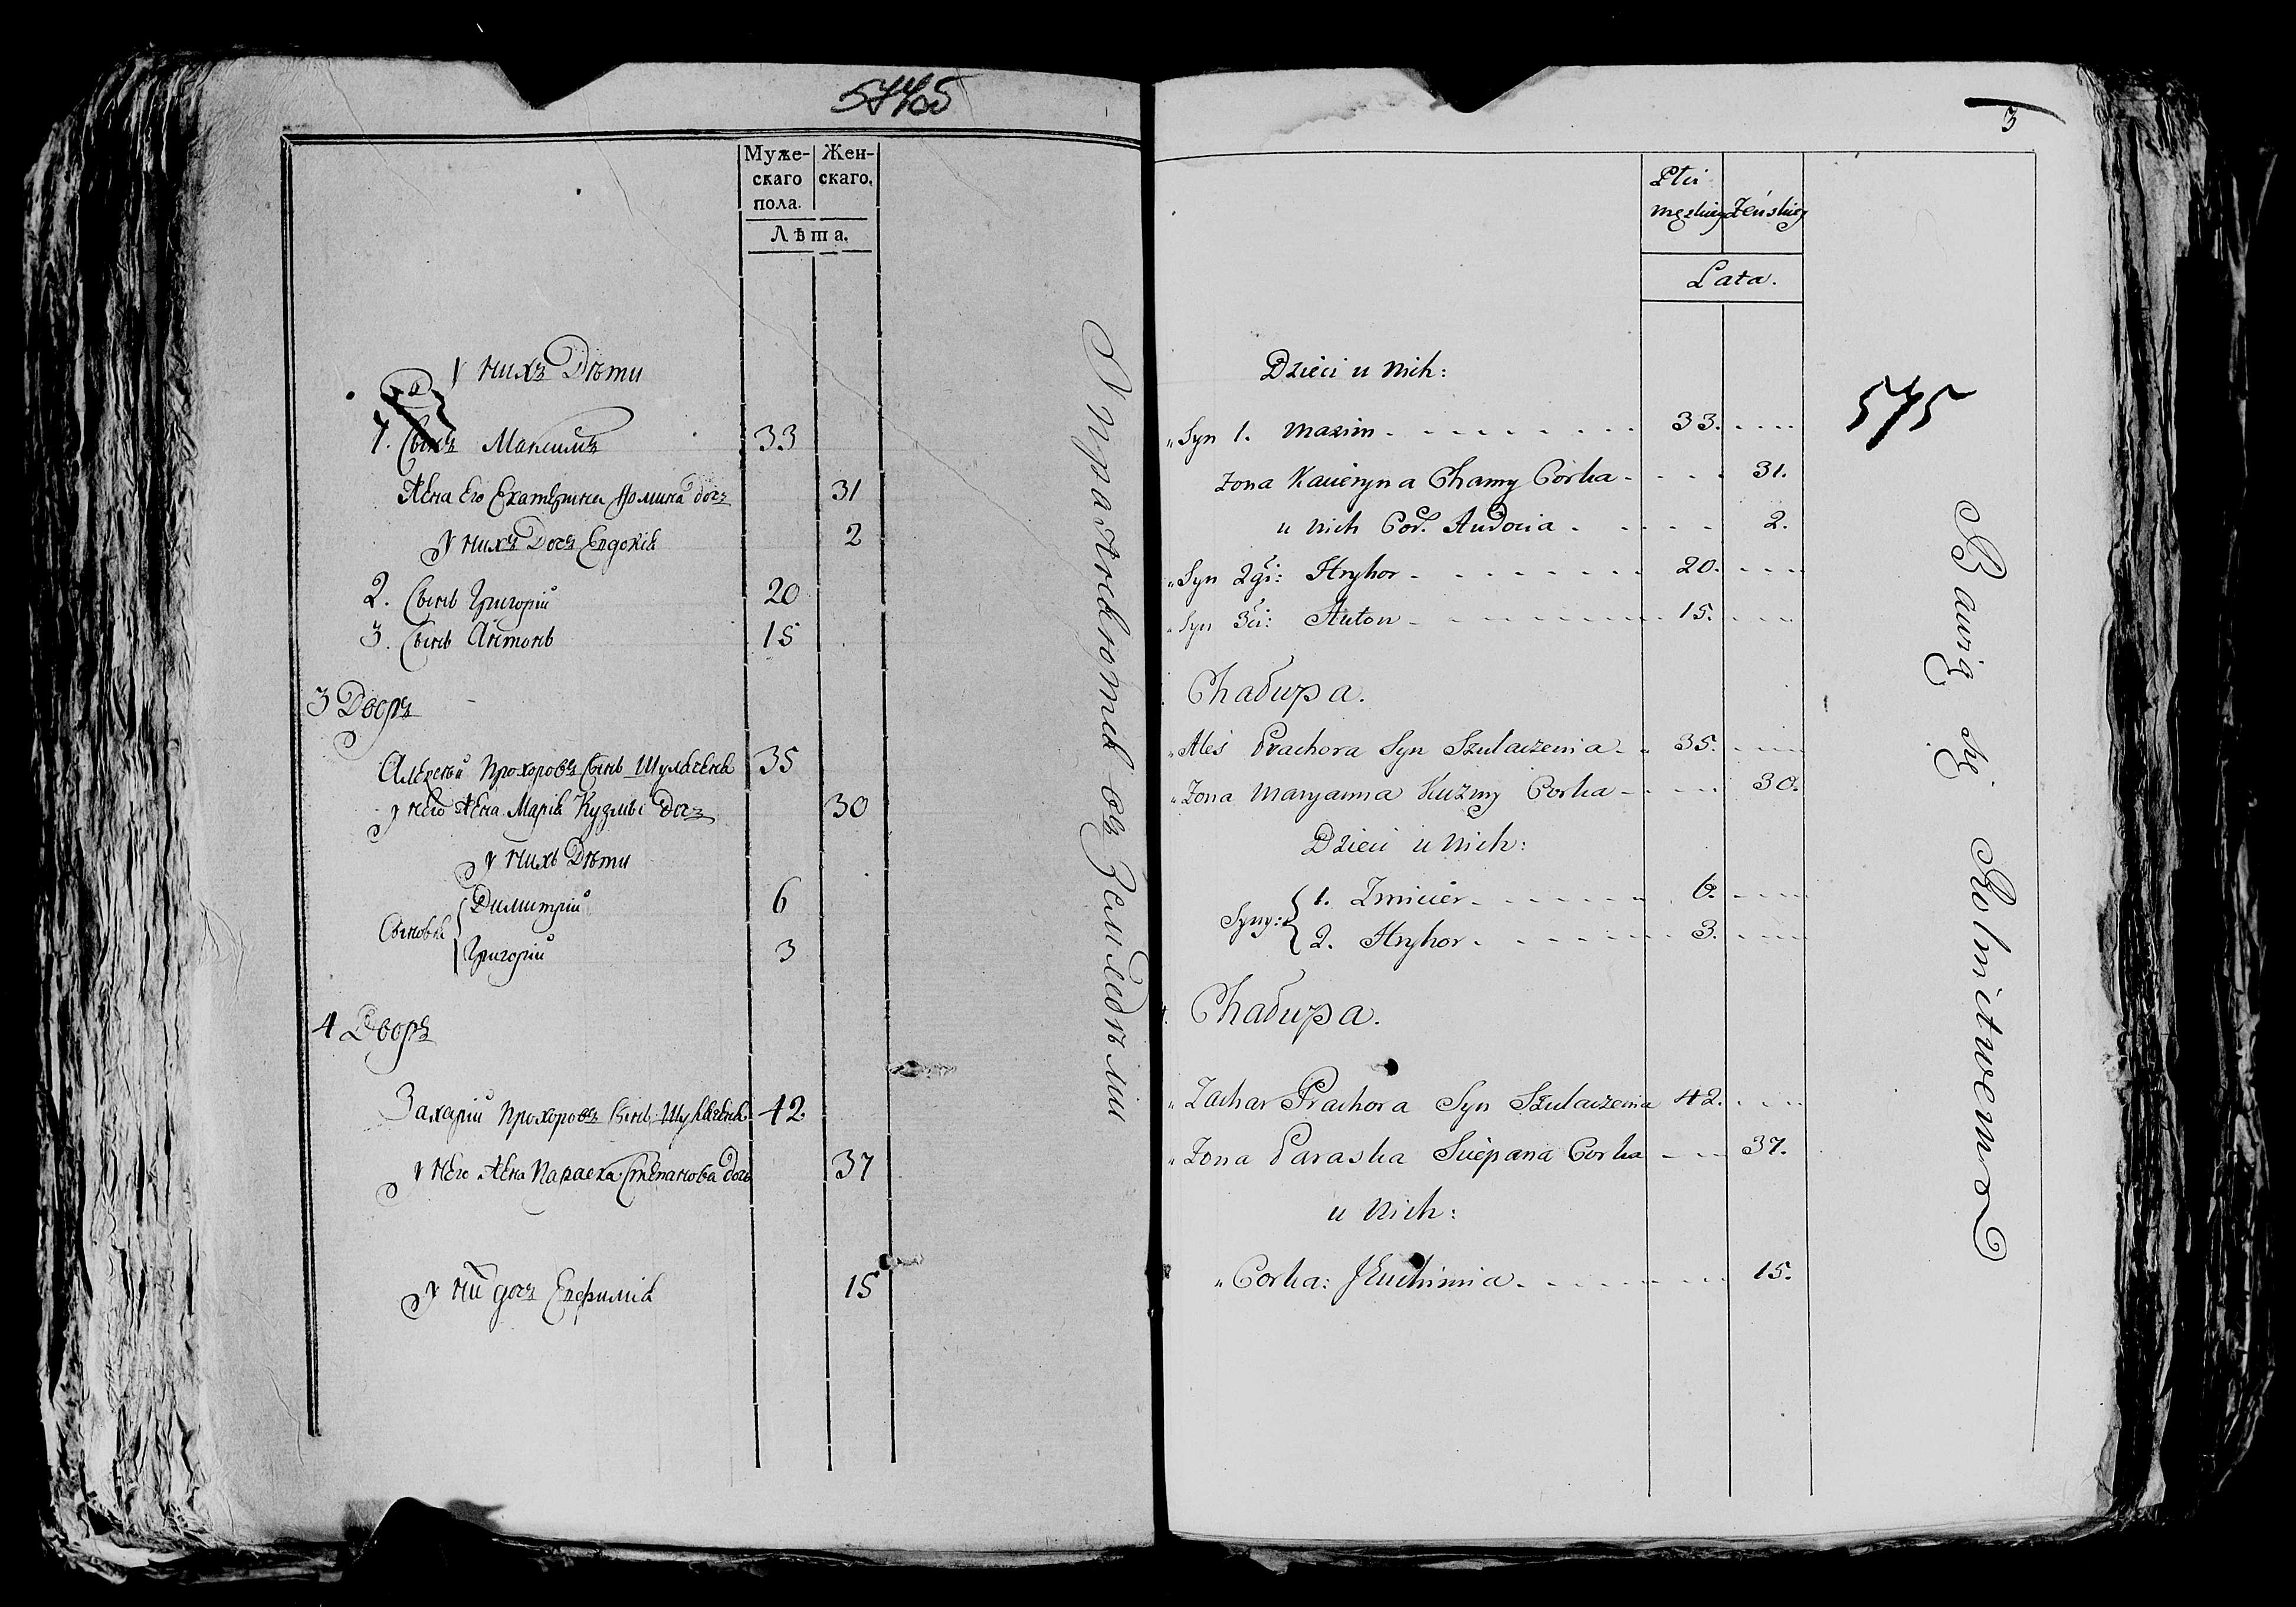 Муже-
скаго
пола.
Жен-
скаго,
Лѣта.
у нихъ Дѣти
1. Сынъ Максимъ 33
Жена Его Екатерина Фомина дочь 31
у нихъ Дочь Евдокія 2
2. Сынъ Григорій 20
3. Сынъ Антонъ 15
3 Дворъ
Алексѣй Прохоровъ Сынъ Шулаченя 35
у него Жена Марія Кузмы дочь 30
у нихъ Дѣти
Сыновья
Димитрій 6
Григорій 3
4 Дворъ
Захарій Прохоровъ Сынъ Шулаченя 42.
у него Жена Параска Степанова дочь 37
у них дочь Евфимія 15
Упражняются въ Земледѣліи
3
Płci
męzkiey
Żeńskiey
Lata.
575
Dzieci u nich:
„Syn 1. Maxim 33.
Zona Kacieryna Chamy Corka 31.
u nich Cor. Audocia 2.
„Syn 2gi: Hryhor 20.
„Syn 3ci: Anton 15.
Chałupa.
„Aleś Prachora Syn Szulaczenia 35.
„Zona Maryanna Kuzmy Corka 30.
Dzieci u nich:
Syny:
1. Zmicier 6.
2. Hryhor 3.
Chałupa.
„Zachar Prachora Syn Szulaczenia 42.
„Zona Paraska Sciepana Corka 37.
u nich:
„Corka: Jeuchimia 15.
Bawią się Rolnictwem